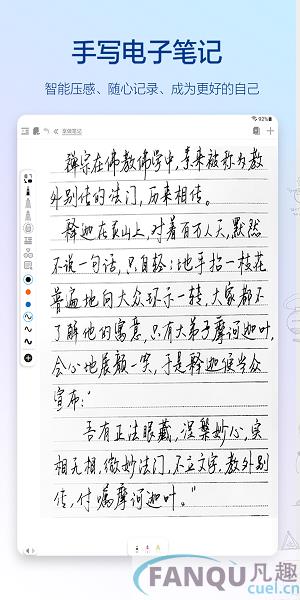 手写电子笔记
智能压感、随心记录、成为更好的自己
92%
享做笔记
禅宗在佛教佛学中，素来被称为教
外别传的法门，历来相传。
释迦在灵山上，对着百万人天，默然
不说一句话，只自轻轻地手拈一枝花
普遍地向大众环示一转，大家都不
了解他的寓意，只有大弟子摩诃迦叶，
会心地展颜一笑，于是释迦便当众
宣布：“
吾有正法眼藏，涅槃妙心，实
相无相，微妙法门，不立文字，教外别
传，付嘱摩诃迦叶。”
FANQU凡趣
cuel.cn